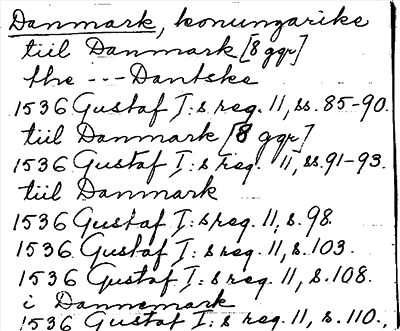 Danmark, konungarike
tiil Danmark [8 ggr]
the --- Dantske
1536 Gustaf I:s reg. 11, ss. 85-90.
tiil Danmark [8 ggr]
1536 Gustaf I:s reg. 11, ss. 91-93.
tiil Danmark
1536 Gustaf I:s reg. 11, s. 98.
1536 Gustaf I:s reg. 11, s. 103.
1536 Gustaf I:s reg. 11, s. 108.
i Dannemark
1536 Gustaf I:s reg. 11, s. 110.,